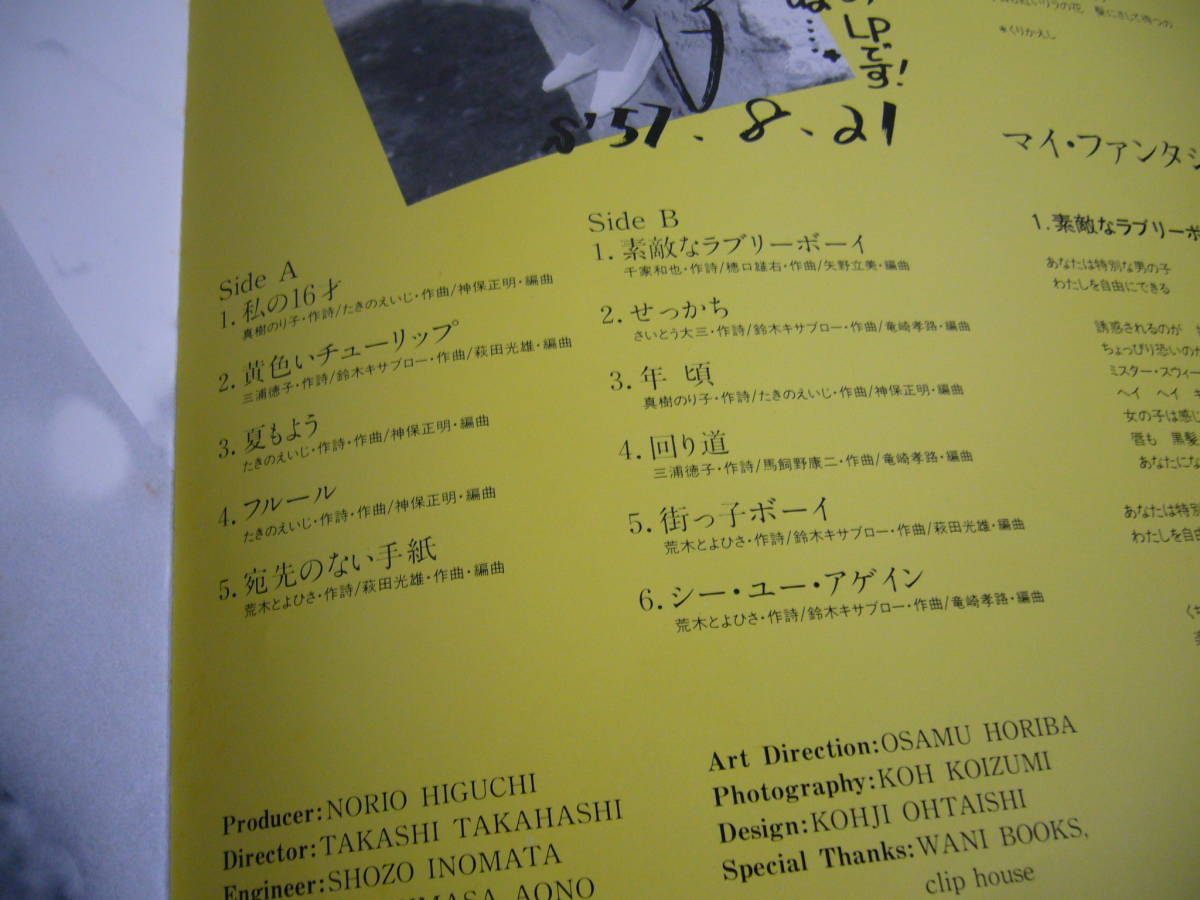 LPです!
S'57.8.21
*くりかえし
マイ・ファンタジ
Side A
1. 私の16才
真樹のり子・作詩/たきのえいじ・作曲/神保正明・編曲
2. 黄色いチューリップ
三浦徳子・作詩/鈴木キサブロー・作曲/萩田光雄・編曲
3. 夏もよう
たきのえいじ・作詩・作曲/神保正明・編曲
4. フルール
たきのえいじ・作詩・作曲/神保正明・編曲
5. 宛先のない手紙
荒木とよひさ・作詩/萩田光雄・作曲・編曲
Side B
1. 素敵なラブリーボーイ
千家和也・作詩/穂口雄右・作曲/矢野立美・編曲
2. せっかち
さいとう大三・作詩/鈴木キサブロー・作曲/竜崎孝路・編曲
3. 年頃
真樹のり子・作詩/たきのえいじ・作曲/神保正明・編曲
4. 回り道
三浦徳子・作詩/馬飼野康二・作曲/竜崎孝路・編曲
5. 街っ子ボーイ
荒木とよひさ・作詩/鈴木キサブロー・作曲/萩田光雄・編曲
6. シー・ユー・アゲイン
荒木とよひさ・作詩/鈴木キサブロー・作曲/竜崎孝路・編曲
1. 素敵なラブリーボ
あなたは特別な男の子
わたしを自由にできる
誘惑されるのが
ちょっぴり恐いのか
ミスター・スウィー
ヘイ ヘイ キ
女の子は感じ
唇も 黒髪
あなたにな
あなたは特別
わたしを自由
Producer:NORIO HIGUCHI
Director:TAKASHI TAKAHASHI
Engineer:SHOZO INOMATA
MASA AONO
Art Direction:OSAMU HORIBA
Photography:KOH KOIZUMI
Design:KOHJI OHTAISHI
Special Thanks:WANI BOOKS,
clip house